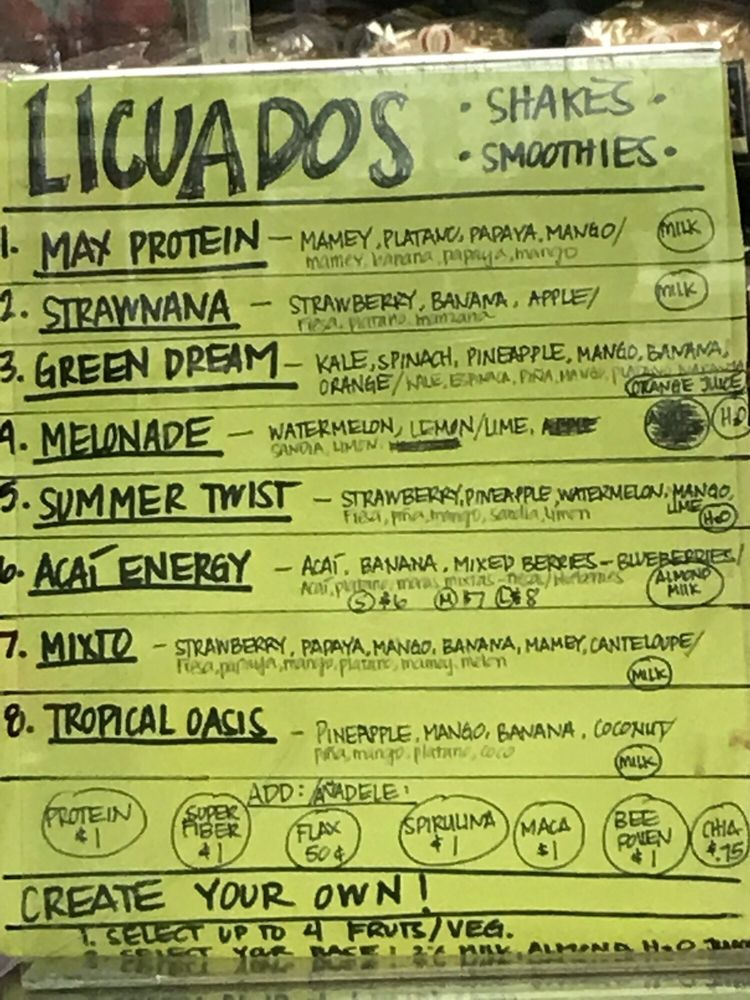 LICUADOS
• SHAKES •
• SMOOTHIES •
1. MAX PROTEIN — MAMEY, PLATANO, PAPAYA, MANGO/ MILK
mamey, banana, papaya, mango
2. STRAWNANA — STRAWBERRY, BANANA, APPLE/ MILK
fresa, platano, manzana
3. GREEN DREAM — KALE, SPINACH, PINEAPPLE, MANGO, BANANA,
ORANGE/ KALE, ESPINACA, PIÑA, MANGO, PLATANO, NARANJA
ORANGE JUICE
4. MELONADE — WATERMELON, LEMON/LIME, H2O
SANDIA, LIMON
5. SUMMER TWIST — STRAWBERRY, PINEAPPLE, WATERMELON, MANGO,
LIME
fresa, piña, mango, sandia, limon H2O
6. ACAÍ ENERGY — ACAÍ, BANANA, MIXED BERRIES - BLUEBERRIES/
Acaí, platano, moras mixtas - fresa/blueberries
S $6 M $7 L $8 ALMOND MILK
7. MIXTO — STRAWBERRY, PAPAYA, MANGO, BANANA, MAMEY, CANTELOUPE/
fresa, papaya, mango, platano, mamey, melon
MILK
8. TROPICAL OASIS — PINEAPPLE, MANGO, BANANA, COCONUT/
piña, mango, platano, coco
MILK
ADD: /AÑADELE:
PROTEIN $1
SUPER FIBER $1
FLAX 50¢
SPIRULINA $1
MACA $1
BEE POLLEN $1
CHIA $.75
CREATE YOUR OWN!
1. SELECT UP TO 4 FRUTS/VEG.
2. SELECT YOUR BASE: 2% MILK, ALMOND, H2O